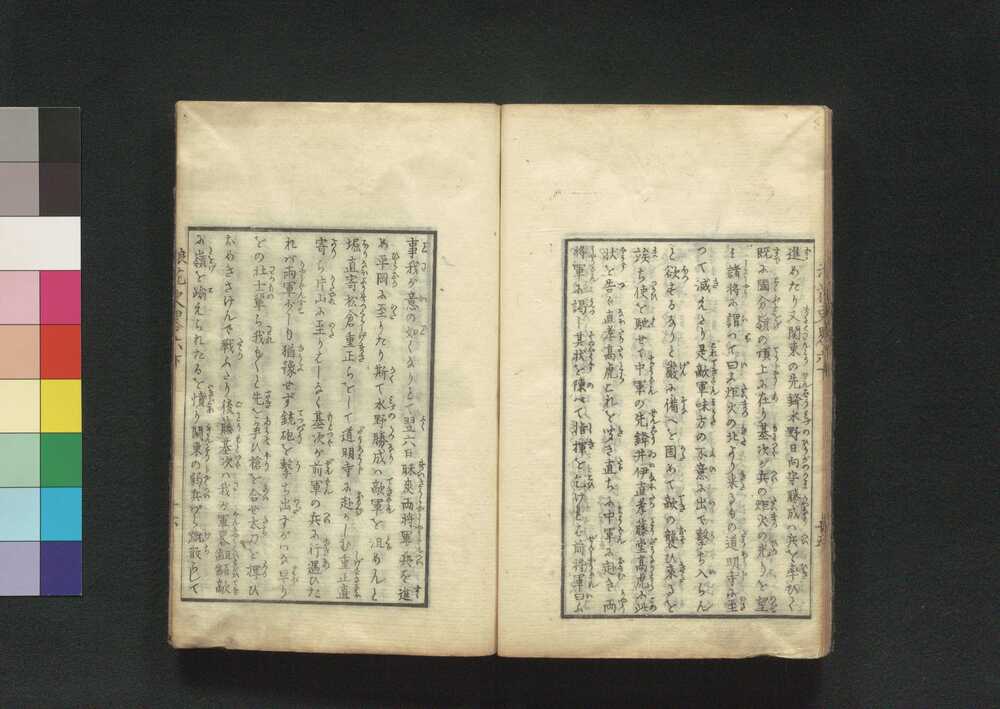 進めたり又關東の先鋒水野日向守勝成ハ兵を率ひて
既に國分嶺の頂上に在り基次が兵の炬火の光りを望
ミ諸將に謂つて曰ふ炬火の北より來るもの道明寺に至
つて滅えたり是敵軍味方の不意に出で撃ち入らん
と欲するならんと嚴に備へを固めて敵の襲ひ來るを
竢ち使を馳せて中軍の先鋒井伊直孝藤堂高虎に此
狀を告ぐ直孝高虎これを以て直ちに中軍に赴き両
將軍に謁し其我を陳べて指揮を乞けるに前將軍曰ふ
事我が意の如くなりとて翌六日昧爽両將軍兵を進
め平岡に至りたり斯て水野勝成ハ敵軍を沮めんと
堀直寄松倉重正らをして道明寺に赴かしむ重正直
寄ら片山に至りてしばらく基次が前軍の兵に行遇ひた
れバ両軍少しも猶豫せず銃砲を撃ち出すがいな早り
をの壯士輩ら我もくと先を爭ひ槍を合せ太刀を揮ひ
おめきさけんで戰ふたり後藤基次ハ我が軍
に嶺を踰えられたるを憤り關東の弱兵ら蹴散らして